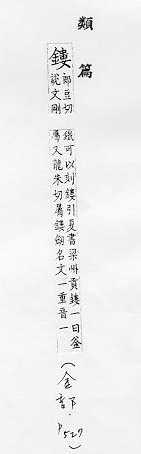 類篇
鏤
郎豆切
說文剛
鐵可以刻鏤引夏書梁州貢鏤一曰釜
屬又龍朱切屬鏤劒名文一重音一
(金部.P527)